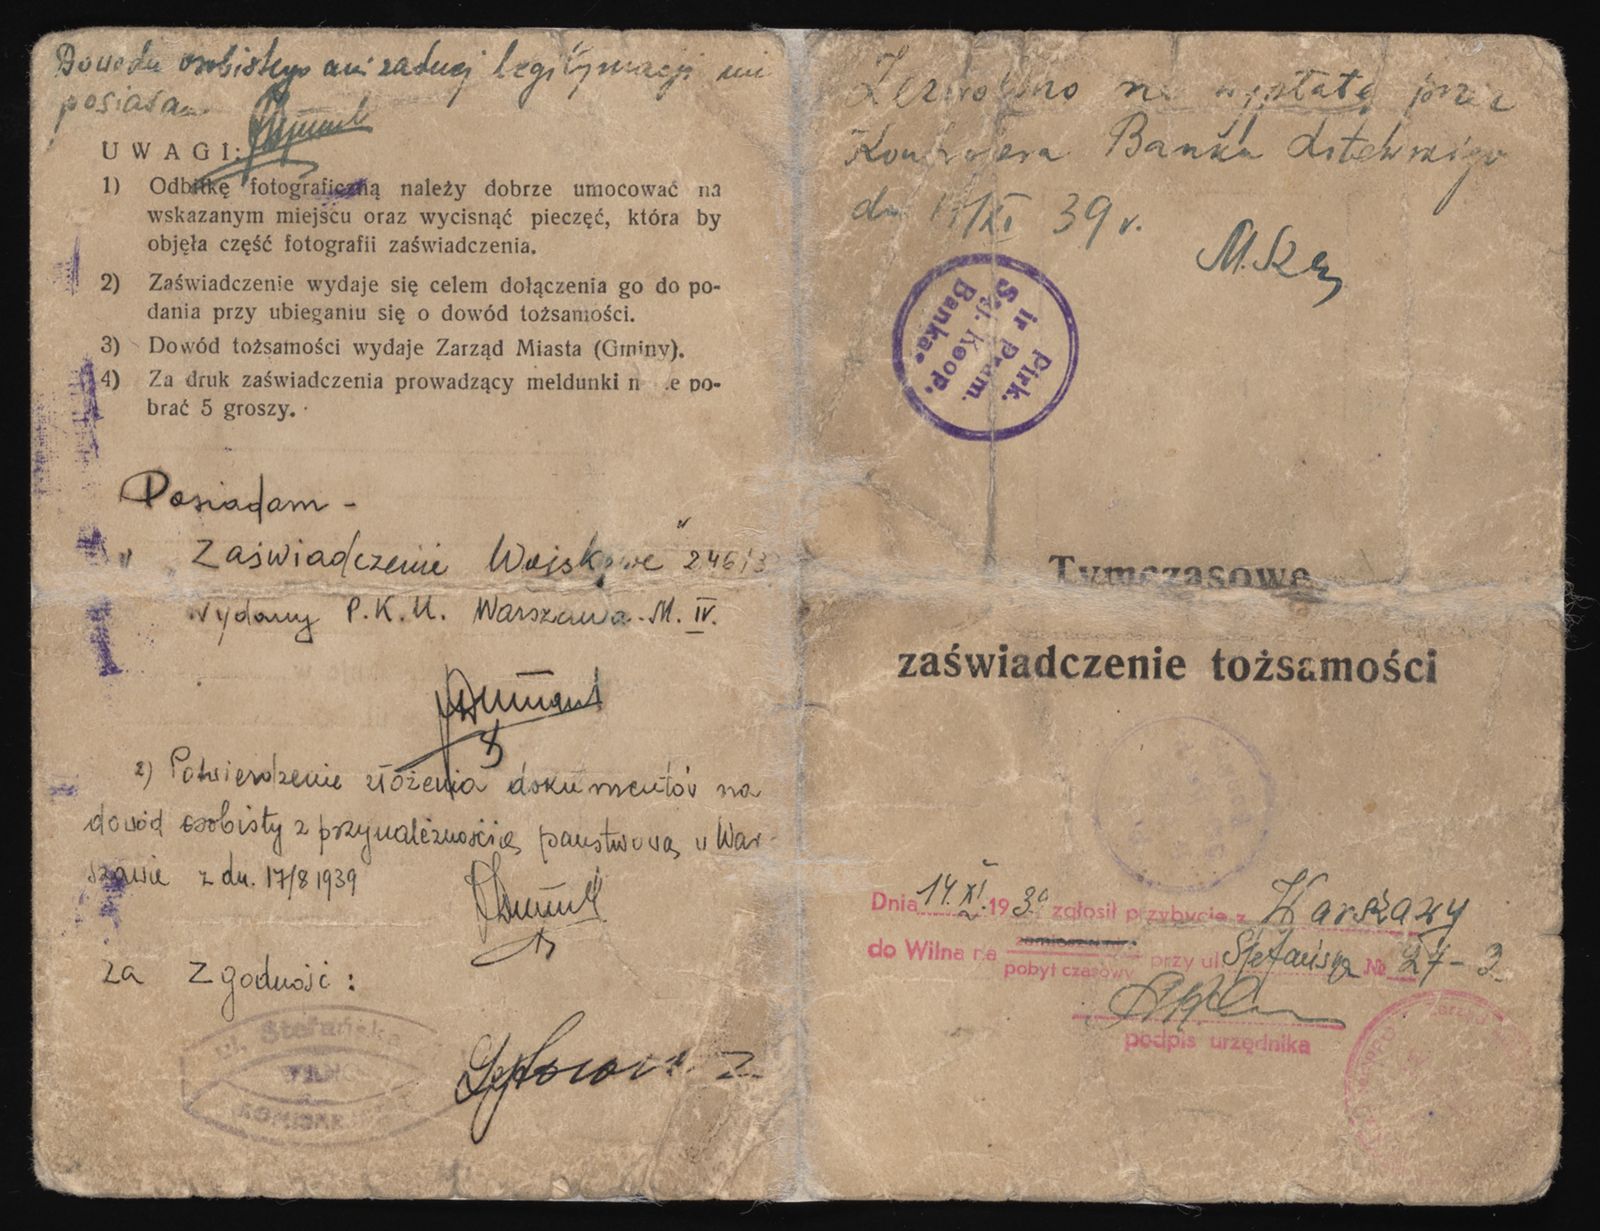 Dowodu osobistego ani żadnej legitymacji nie
posiadam.
UWAGI:
1) Odbitkę fotograficzną należy dobrze umocować na
wskazanym miejscu oraz wycisnąć pieczęć, która by
objęła część fotografii zaświadczenia.
2) Zaświadczenie wydaje się celem dołączenia go do po-
dania przy ubieganiu się o dowód tożsamości.
3) Dowód tożsamości wydaje Zarząd Miasta (Gminy).
4) Za druk zaświadczenia prowadzący meldunki po-
brać 5 groszy.
Posiadam -
„Zaświadczenie Wojskowe" 246/3
wydany P.K.U. Warszawa. M. IV.
2) Potwierdzenie złożenia dokumentów na
dowód osobisty z przynależnością państwową w War-
szawie z dn. 17/8 1939
za zgodność:
ul. Stefańska
WILNO
KOMISARJAT
Zezwolono na wypłatę przez
Banku Litewskiego
dn /XI 39 r.
M. Sze
Pirk.
ir Pram.
Sąj. Koop.
Bankas
Tymczasowe
zaświadczenie tożsamości
Dnia 14.XI.1939 zgłosił przybycie z Warszawy
do Wilna na zamieszkanie przy ul Stefańska № 27-3
pobyt czasowy
podpis urzędnika